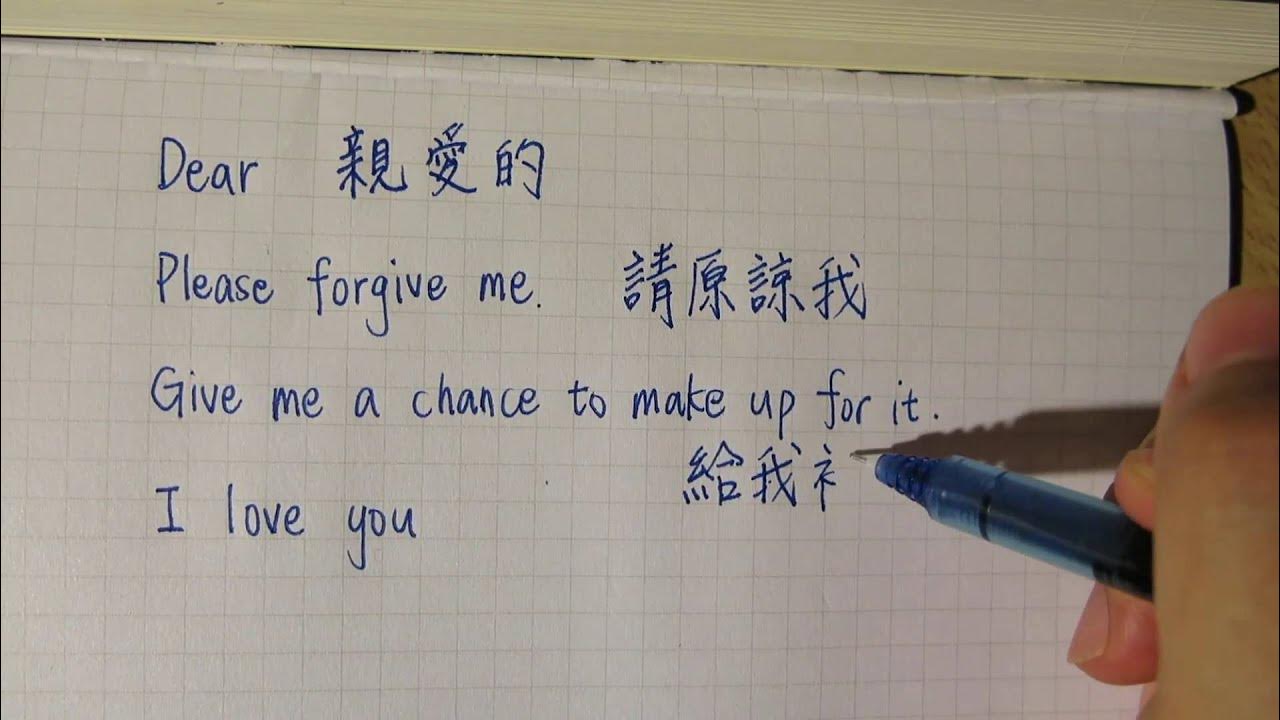 Dear 親愛的
Please forgive me. 請原諒我
Give me a chance to make up for it.
給我
I love you